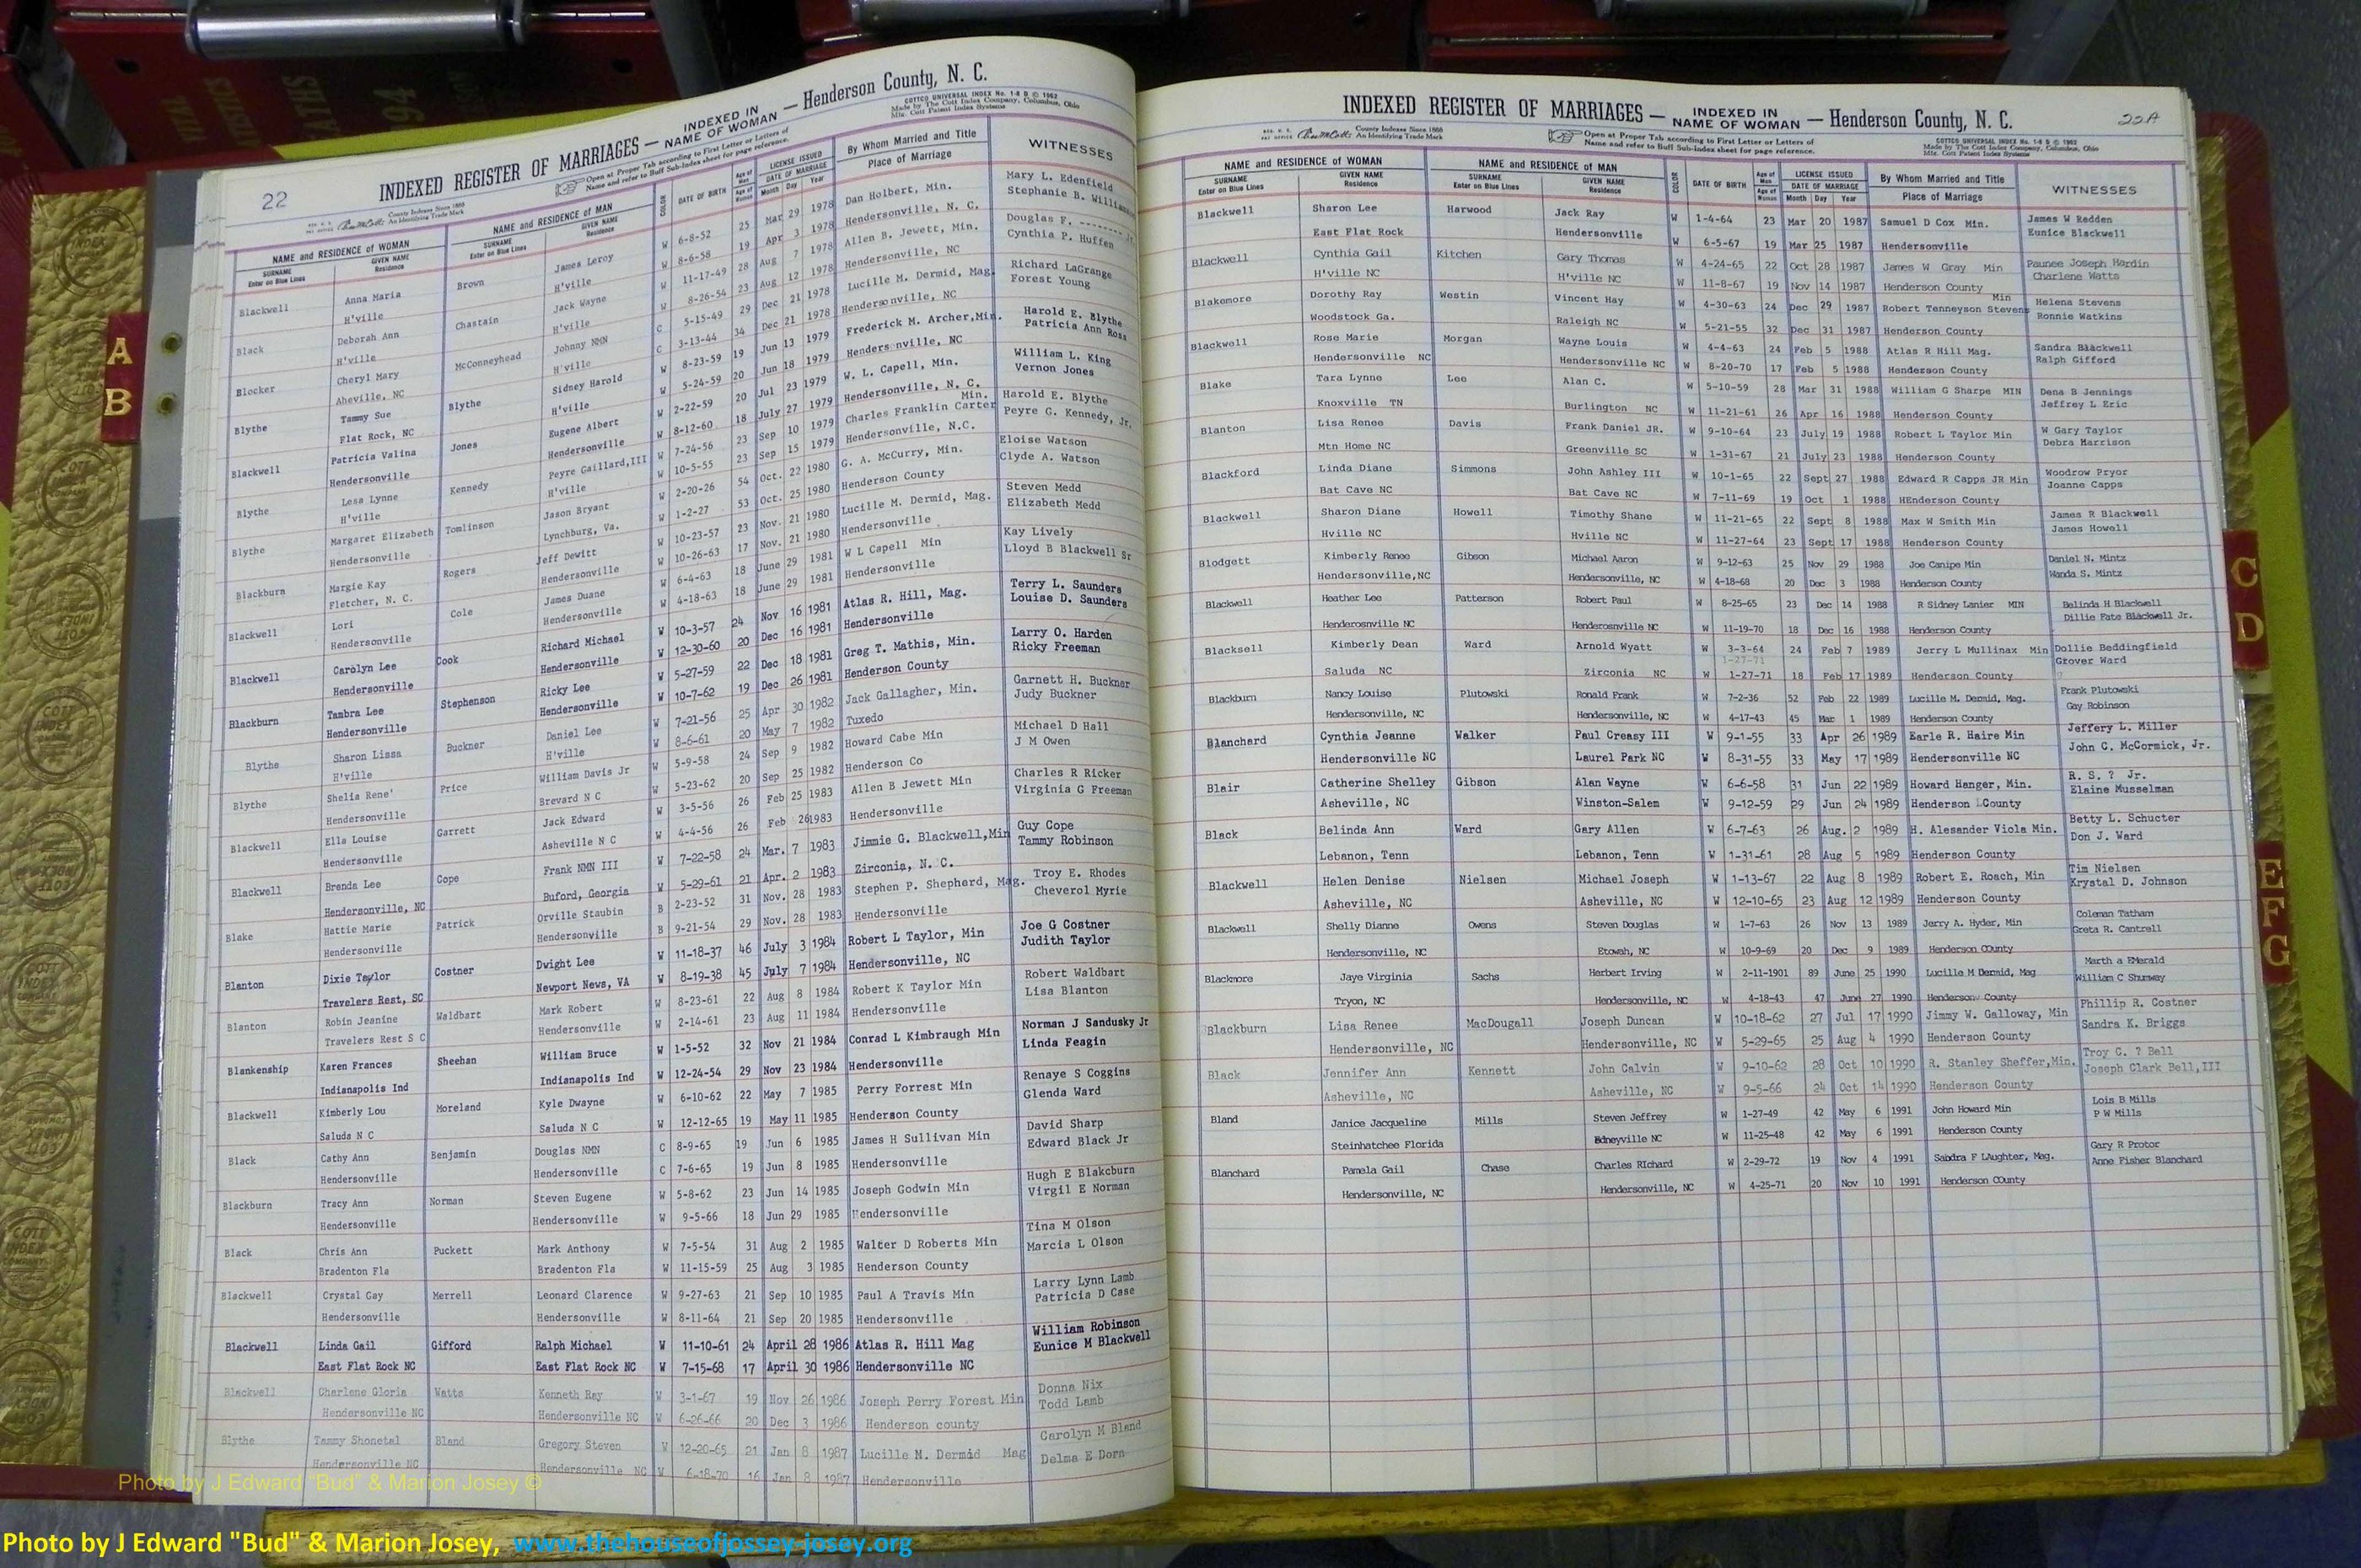 22
INDEXED REGISTER OF MARRIAGES — INDEXED IN NAME OF WOMAN — Henderson County, N. C.
COTTCO UNIVERSAL INDEX No. 1-8 B © 1962
Made by The Cott Index Company, Columbus, Ohio
Mfg. Cott Patent Index Systems
County Indexes Since 1888
An Identifying Trade Mark
Open at Proper Tab according to First Letter or Letters of
Name and refer to Buff Sub-Index sheet for page reference.
NAME and RESIDENCE OF WOMAN NAME and RESIDENCE OF MAN COLOR DATE OF BIRTH Age of Man LICENSE ISSUED By Whom Married and Title WITNESSES
SURNAME Enter on Blue Lines GIVEN NAME Residence SURNAME Enter on Blue Lines GIVEN NAME Residence Age of Woman DATE OF MARRIAGE Month Day Year Place of Marriage
Blackwell Anna Maria Brown James Leroy W 6-8-52 25 Mar 29 1978 Dan Holbert, Min. Mary L. Edenfield
H'ville H'ville W 8-6-58 19 Apr 3 1978 Hendersonville, N. C. Stephanie B.
Black Deborah Ann Chastain Jack Wayne W 11-17-49 28 Aug 7 1978 Allen B. Jewett, Min. Douglas F. -------- Jr.
H'ville H'ville W 8-26-54 23 Aug 12 1978 Hendersonville, NC Cynthia P. Huffen
Blocker Cheryl Mary McConneyhead Johnny NMN C 5-15-49 29 Dec 21 1978 Lucille M. Dermid, Mag. Richard LaGrange
Aheville, NC H'ville C 3-13-44 34 Dec 21 1978 Hendersonville, NC Forest Young
Blythe Tammy Sue Blythe Sidney Harold W 8-23-59 19 Jun 13 1979 Frederick M. Archer, Min. Harold E. Blythe
Flat Rock, NC H'ville W 5-24-59 20 Jun 18 1979 Hendersonville, NC Patricia Ann Ross
Blackwell Patricia Valina Jones Eugene Albert W 2-22-59 20 Jul 23 1979 W. L. Capell, Min. William L. King
Hendersonville Hendersonville W 8-12-60 18 July 27 1979 Hendersonville, N. C. Vernon Jones
Blythe Lesa Lynne Kennedy Peyre Gaillard,III W 7-24-56 23 Sep 10 1979 Charles Franklin Carter Min. Harold E. Blythe
H'ville H'ville W 10-5-55 23 Sep 15 1979 Hendersonville, N.C. Peyre G. Kennedy, Jr.
Blythe Margaret Elizabeth Tomlinson Jason Bryant W 2-20-26 54 Oct. 22 1980 G. A. McCurry, Min. Eloise Watson
Hendersonville Lynchburg, Va. W 1-2-27 53 Oct. 25 1980 Henderson County Clyde A. Watson
Blackburn Margie Kay Rogers Jeff Dewitt W 10-23-57 23 Nov. 21 1980 Lucille M. Dermid, Mag. Steven Medd
Fletcher, N. C. Hendersonville W 10-26-63 17 Nov. 21 1980 Hendersonville Elizabeth Medd
Blackwell Lori Cole James Duane W 6-4-63 18 June 29 1981 W L Capell Min Kay Lively
Hendersonville Hendersonville W 4-18-63 18 June 29 1981 Hendersonville Lloyd B Blackwell Sr
Blackwell Carolyn Lee Cook Richard Michael W 10-3-57 24 Nov 16 1981 Atlas R. Hill, Mag. Terry L. Saunders
Hendersonville Hendersonville W 12-30-60 20 Dec 16 1981 Hendersonville Louise D. Saunders
Blackburn Tambra Lee Stephenson Ricky Lee W 5-27-59 22 Dec 18 1981 Greg T. Mathis, Min. Larry O. Harden
Hendersonville Hendersonville W 10-7-62 19 Dec 26 1981 Henderson County Ricky Freeman
Blythe Sharon Lissa Buckner Daniel Lee W 7-21-56 25 Apr 30 1982 Jack Gallagher, Min. Garnett H. Buckner
H'ville H'ville W 8-6-61 20 May 7 1982 Tuxedo Judy Buckner
Blythe Shelia Rene' Price William Davis Jr W 5-9-58 24 Sep 9 1982 Howard Cabe Min Michael D Hall
Hendersonville Brevard N C W 5-23-62 20 Sep 25 1982 Henderson Co J M Owen
Blackwell Ella Louise Garrett Jack Edward W 3-5-56 26 Feb 25 1983 Allen B Jewett Min Charles R Ricker
Hendersonville Asheville N C W 4-4-56 26 Feb 26 1983 Hendersonville Virginia G Freeman
Blackwell Brenda Lee Cope Frank NMN III W 7-22-58 24 Mar. 7 1983 Jimmie G. Blackwell,Min Guy Cope
Hendersonville, NC Buford, Georgia W 5-29-61 21 Apr. 2 1983 Zirconia, N. C. Tammy Robinson
Blake Hattie Marie Patrick Orville Staubin B 2-23-52 31 Nov. 28 1983 Stephen P. Shepherd, Mag. Troy E. Rhodes
Hendersonville Hendersonville B 9-21-54 29 Nov. 28 1983 Hendersonville Cheverol Myrie
Blanton Dixie Taylor Costner Dwight Lee W 11-18-37 46 July 3 1984 Robert L Taylor, Min Joe G Costner
Travelers Rest, SC Newport News, VA W 8-19-38 45 July 7 1984 Hendersonville, NC Judith Taylor
Blanton Robin Jeanine Waldbart Mark Robert W 8-23-61 22 Aug 8 1984 Robert K Taylor Min Robert Waldbart
Travelers Rest S C Hendersonville W 2-14-61 23 Aug 11 1984 Hendersonville Lisa Blanton
Blankenship Karen Frances Sheehan William Bruce W 1-5-52 32 Nov 21 1984 Conrad L Kimbraugh Min Norman J Sandusky Jr
Indianapolis Ind Indianapolis Ind W 12-24-54 29 Nov 23 1984 Hendersonville Linda Feagin
Blackwell Kimberly Lou Moreland Kyle Dwayne W 6-10-62 22 May 7 1985 Perry Forrest Min Renaye S Coggins
Saluda N C Saluda N C W 12-12-65 19 May 11 1985 Henderson County Glenda Ward
Black Cathy Ann Benjamin Douglas NMN C 8-9-65 19 Jun 6 1985 James H Sullivan Min David Sharp
Hendersonville Hendersonville C 7-6-65 19 Jun 8 1985 Hendersonville Edward Black Jr
Blackburn Tracy Ann Norman Steven Eugene W 5-8-62 23 Jun 14 1985 Joseph Godwin Min Hugh E Blakcburn
Hendersonville Hendersonville W 9-5-66 18 Jun 29 1985 Hendersonville Virgil E Norman
Black Chris Ann Puckett Mark Anthony W 7-5-54 31 Aug 2 1985 Walter D Roberts Min Tina M Olson
Bradenton Fla Bradenton Fla W 11-15-59 25 Aug 3 1985 Henderson County Marcia L Olson
Blackwell Crystal Gay Merrell Leonard Clarence W 9-27-63 21 Sep 10 1985 Paul A Travis Min Larry Lynn Lamb
Hendersonville Hendersonville W 8-11-64 21 Sep 20 1985 Hendersonville Patricia D Case
Blackwell Linda Gail Gifford Ralph Michael W 11-10-61 24 April 28 1986 Atlas R. Hill Mag William Robinson
East Flat Rock NC East Flat Rock NC W 7-15-68 17 April 30 1986 Hendersonville NC Eunice M Blackwell
Blackwell Charlene Gloria Watts Kenneth Ray W 3-1-67 19 Nov 26 1986 Joseph Perry Forest Min Donna Nix
Hendersonville NC Hendersonville NC W 6-26-66 20 Dec 3 1986 Henderson county Todd Lamb
Blythe Tammy Shonetal Bland Gregory Steven W 12-20-65 21 Jan 8 1987 Lucille M. Dermid Mag Carolyn M Bland
Hendersonville NC Hendersonville NC W 6-18-70 16 Jan 8 1987 Hendersonville Delma E Dorn
22A
INDEXED REGISTER OF MARRIAGES — INDEXED IN NAME OF WOMAN — Henderson County, N. C.
County Indexes Since 1888
An Identifying Trade Mark
Open at Proper Tab according to First Letter or Letters of
Name and refer to Buff Sub-Index sheet for page reference.
COTTCO UNIVERSAL INDEX No. 1-8 B © 1962
Made by The Cott Index Company, Columbus, Ohio
Mfg. Cott Patent Index Systems
NAME and RESIDENCE OF WOMAN NAME and RESIDENCE OF MAN COLOR DATE OF BIRTH Age of Man LICENSE ISSUED By Whom Married and Title WITNESSES
SURNAME Enter on Blue Lines GIVEN NAME Residence SURNAME Enter on Blue Lines GIVEN NAME Residence Age of Woman DATE OF MARRIAGE Month Day Year Place of Marriage
Blackwell Sharon Lee Harwood Jack Ray W 1-4-64 23 Mar 20 1987 Samuel D Cox Min. James W Redden
East Flat Rock Hendersonville W 6-5-67 19 Mar 25 1987 Hendersonville Eunice Blackwell
Blackwell Cynthia Gail Kitchen Gary Thomas W 4-24-65 22 Oct 28 1987 James W Gray Min Paunee Joseph Hardin
H'ville NC H'ville NC W 11-8-67 19 Nov 14 1987 Henderson County Charlene Watts
Blakemore Dorothy Ray Westin Vincent Hay W 4-30-63 24 Dec 29 1987 Robert Tenneyson Stevens Min Helena Stevens
Woodstock Ga. Raleigh NC W 5-21-55 32 Dec 31 1987 Henderson County Ronnie Watkins
Blackwell Rose Marie Morgan Wayne Louis W 4-4-63 24 Feb 5 1988 Atlas R Hill Mag. Sandra Blackwell
Hendersonville NC Hendersonville NC W 8-20-70 17 Feb 5 1988 Henderson County Ralph Gifford
Blake Tara Lynne Lee Alan C. W 5-10-59 28 Mar 31 1988 William G Sharpe MIN Dena B Jennings
Knoxville TN Burlington NC W 11-21-61 26 Apr 16 1988 Henderson County Jeffrey L Eric
Blanton Lisa Renee Davis Frank Daniel JR. W 9-10-64 23 July 19 1988 Robert L Taylor Min W Gary Taylor
Mtn Home NC Greenville SC W 1-31-67 21 July 23 1988 Henderson County Debra Harrison
Blackford Linda Diane Simmons John Ashley III W 10-1-65 22 Sept 27 1988 Edward R Capps JR Min Woodrow Pryor
Bat Cave NC Bat Cave NC W 7-11-69 19 Oct 1 1988 HEnderson County Joanne Capps
Blackwell Sharon Diane Howell Timothy Shane W 11-21-65 22 Sept 8 1988 Max W Smith Min James R Blackwell
Hville NC Hville NC W 11-27-64 23 Sept 17 1988 Henderson County James Howell
Blodgett Kimberly Renee Gibson Michael Aaron W 9-12-63 25 Nov 29 1988 Joe Canipe Min Daniel N. Mintz
Hendersonville,NC Hendersonville, NC W 4-18-68 20 Dec 3 1988 Henderson County Wanda S. Mintz
Blackwell Heather Lee Patterson Robert Paul W 8-25-65 23 Dec 14 1988 R Sidney Lanier MIN Belinda H Blackwell
Henderosnville NC Henderosnville NC W 11-19-70 18 Dec 16 1988 Henderson County Dillie Fate Blackwell Jr.
Blacksell Kimberly Dean Ward Arnold Wyatt W 3-3-64 24 Feb 7 1989 Jerry L Mullinax Min Dollie Beddingfield
1-27-71
Saluda NC Zirconia NC W 1-27-71 18 Feb 17 1989 Henderson County Grover Ward
Blackburn Nancy Louise Plutowski Ronald Frank W 7-2-36 52 Feb 22 1989 Lucille M. Dermid, Mag. Frank Plutowski
Hendersonville, NC Hendersonville, NC W 4-17-43 45 Mar 1 1989 Henderson County Gay Robinson
Blanchard Cynthia Jeanne Walker Paul Creasy III W 9-1-55 33 Apr 26 1989 Earle R. Haire Min Jeffery L. Miller
Hendersonville NC Laurel Park NC W 8-31-55 33 May 17 1989 Hendersonville NC John C. McCormick, Jr.
Blair Catherine Shelley Gibson Alan Wayne W 6-6-58 31 Jun 22 1989 Howard Hanger, Min. R. S. ? Jr.
Asheville, NC Winston-Salem W 9-12-59 29 Jun 24 1989 Henderson County Elaine Musselman
Black Belinda Ann Ward Gary Allen W 6-7-63 26 Aug. 2 1989 H. Alesander Viola Min. Betty L. Schucter
Lebanon, Tenn Lebanon, Tenn W 1-31-61 28 Aug 5 1989 Henderson County Don J. Ward
Blackwell Helen Denise Nielsen Michael Joseph W 1-13-67 22 Aug 8 1989 Robert E. Roach, Min Tim Nielsen
Asheville, NC Asheville, NC W 12-10-65 23 Aug 12 1989 Henderson County Krystal D. Johnson
Blackwell Shelly Dianne Owens Steven Douglas W 1-7-63 26 Nov 13 1989 Jerry A. Hyder, Min Coleman Tatham
Hendersonville, NC Etowah, NC W 10-9-69 20 Dec 9 1989 Henderson COunty Greta R. Cantrell
Blackmore Jaye Virginia Sachs Herbert Irving W 2-11-1901 89 June 25 1990 Lucille M Dermid, Mag Marth a EMerald
Tryon, NC Hendersonville, NC W 4-18-43 47 June 27 1990 Henderson County William C Shumway
Blackburn Lisa Renee MacDougall Joseph Duncan W 10-18-62 27 Jul 17 1990 Jimmy W. Galloway, Min Phillip R. Costner
Hendersonville, NC Hendersonville, NC W 5-29-65 25 Aug 4 1990 Henderson County Sandra K. Briggs
Black Jennifer Ann Kennett John Calvin W 9-10-62 28 Oct 10 1990 R. Stanley Sheffer,Min. Troy C. ? Bell
Asheville, NC Asheville, NC W 9-5-66 24 Oct 14 1990 Henderson County Joseph Clark Bell,III
Bland Janice Jacqueline Mills Steven Jeffrey W 1-27-49 42 May 6 1991 John Howard Min Lois B Mills
Steinhatchee Florida Edneyville NC W 11-25-48 42 May 6 1991 Henderson County P W Mills
Blanchard Pamela Gail Chase Charles RIchard W 2-29-72 19 Nov 4 1991 Sabdra F LAughter, Mag. Gary R Protor
Hendersonville, NC Hendersonville, NC W 4-25-71 20 Nov 10 1991 Henderson COunty Anne Fisher Blanchard
A
B
C
D
E
F
G
94
Photo by J Edward "Bud" & Marion Josey ©
Photo by J Edward "Bud" & Marion Josey, www.thehouseofjossey-josey.org